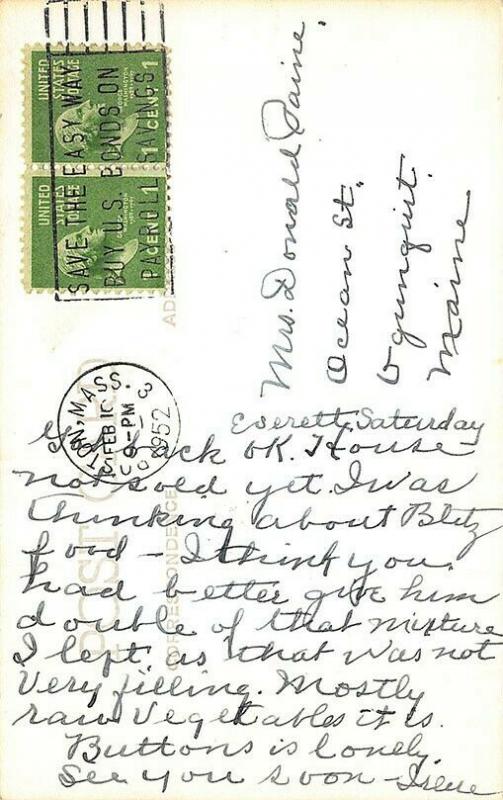 UNITED
STATES
POSTAGE
1 CENT 1
UNITED
STATES
POSTAGE
1 CENT 1
SAVE THE EASY WAY
BUY U.S. BONDS ON
PAYROLL SAVINGS
TON, MASS. 3
FEB 10
9 - PM
1952
POST CARD
CORRESPONDENCE
Mrs. Donald Paine.
Ocean St.
Ogunquit.
Maine
Everett Saturday
Got back OK. House
not sold yet. I was
thinking about Blitz
food - I think you
had better give him
double of that mixture
I left, as that was not
very filling. Mostly
raw vegetables it is.
Buttons is lonely.
See you soon - Irene